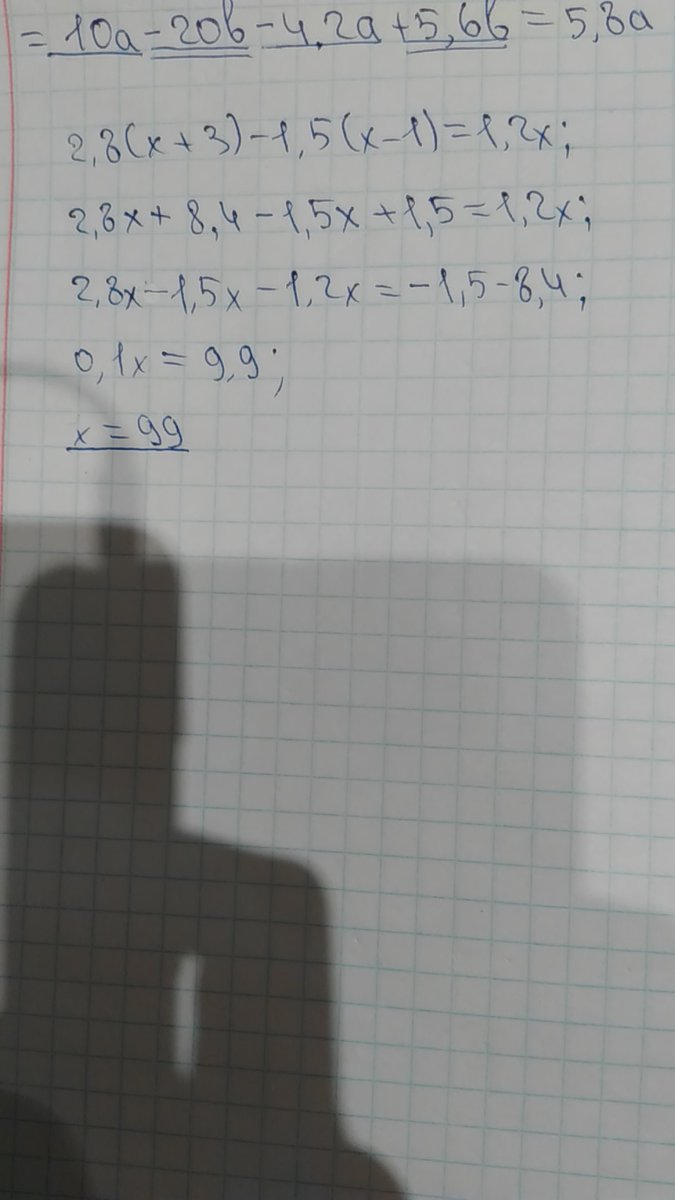 = 10a - 20b - 4,2a + 5,6b = 5,8a
2,8(x + 3) - 1,5(x - 1) = 1,2x;
2,8x + 8,4 - 1,5x + 1,5 = 1,2x;
2,8x - 1,5x - 1,2x = -1,5 - 8,4;
0,1x = 9,9;
x = 99